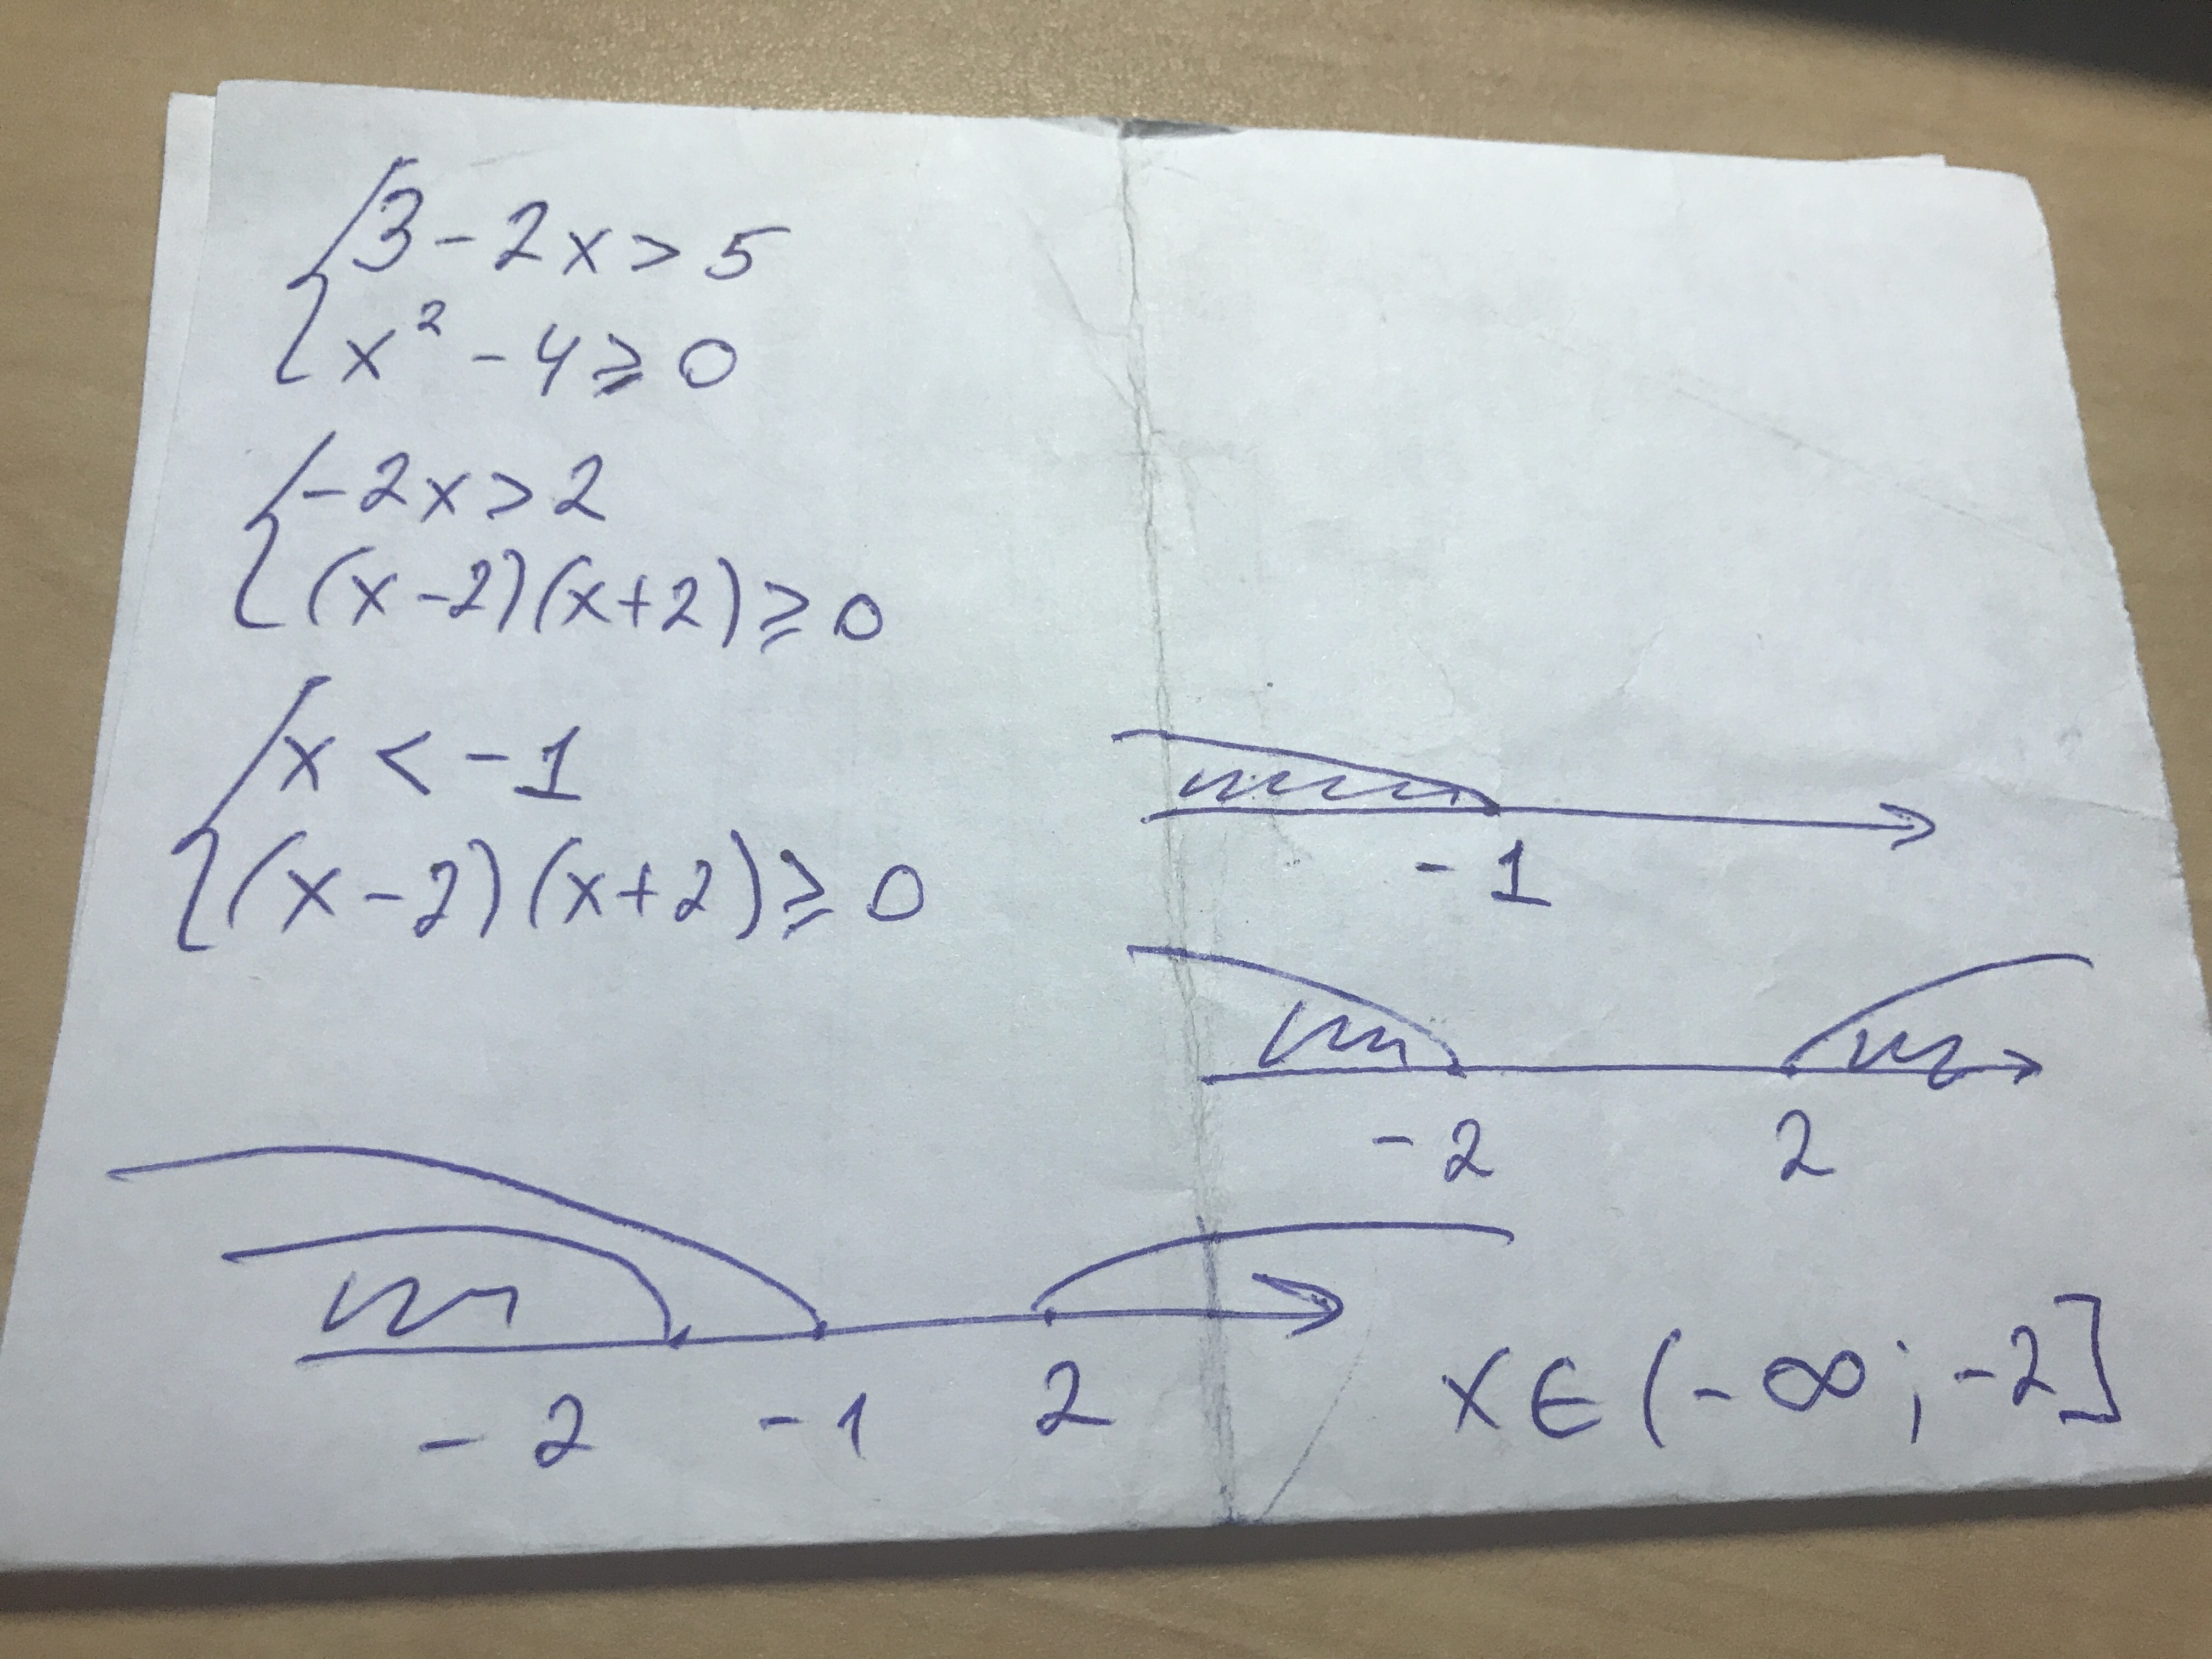 3 - 2x > 5
x² - 4 ≥ 0
-2x > 2
(x-2)(x+2) ≥ 0
x < -1
(x-2)(x+2) ≥ 0
-1
-2 2
-2 -1 2
x ∈ (-∞; -2]